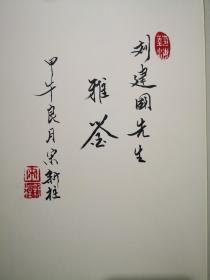 刘建国先生
雅鉴
甲午良月宋新柱